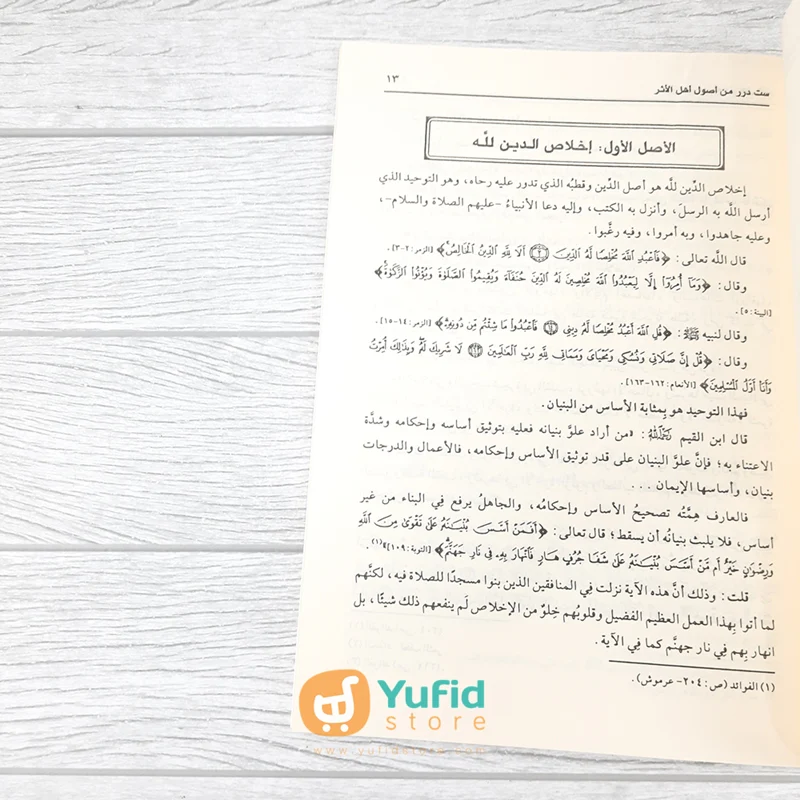 ست درر من أصول أهل الأثر ١٣
الأصل الأول: إخلاص الدين للَّه
إخلاص الدِّين للَّه هو أصل الدِّين وقطبُه الذي تدور عليه رحاه، وهو التوحيد الذي
أرسل اللَّه به الرسلَ، وأنزل به الكتب، وإليه دعا الأنبياءُ -عليهم الصلاة والسلام-،
وعليه جاهدوا، وبه أمروا، وفيه رغَّبوا.
قال اللَّه تعالى: ﴿فَاعْبُدِ اللَّهَ مُخْلِصًا لَهُ الدِّينَ ۝٢ أَلَا لِلَّهِ الدِّينُ الْخَالِصُ﴾ [الزمر: ٢-٣].
وقال: ﴿وَمَا أُمِرُوا إِلَّا لِيَعْبُدُوا اللَّهَ مُخْلِصِينَ لَهُ الدِّينَ حُنَفَاءَ وَيُقِيمُوا الصَّلَاةَ وَيُؤْتُوا الزَّكَاةَ﴾
[البينة: ٥].
وقال لنبيه ﷺ: ﴿قُلِ اللَّهَ أَعْبُدُ مُخْلِصًا لَهُ دِينِي ۝١٤ فَاعْبُدُوا مَا شِئْتُمْ مِنْ دُونِهِ﴾ [الزمر: ١٤-١٥].
وقال: ﴿قُلْ إِنَّ صَلَاتِي وَنُسُكِي وَمَحْيَايَ وَمَمَاتِي لِلَّهِ رَبِّ الْعَالَمِينَ ۝١٦٢ لَا شَرِيكَ لَهُ وَبِذَلِكَ أُمِرْتُ
وَأَنَا أَوَّلُ الْمُسْلِمِينَ﴾ [الأنعام: ١٦٢-١٦٣].
فهذا التوحيد هو بِمثابة الأساس من البنيان.
قال ابن القيم رَحِمَهُ اللَّهُ: «من أراد علوَّ بنيانه فعليه بتوثيق أساسه وإحكامه وشدَّة
الاعتناء به؛ فإنَّ علوَّ البنيان على قدر توثيق الأساس وإحكامه، فالأعمال والدرجات
بنيان، وأساسها الإيمان ...
فالعارف هِمَّتُه تصحيحُ الأساس وإحكامُه، والجاهلُ يرفع فِي البناء من غير
أساس، فلا يلبث بنيانُه أن يسقط؛ قال تعالى: ﴿أَفَمَنْ أَسَّسَ بُنْيَانَهُ عَلَى تَقْوَى مِنَ اللَّهِ
وَرِضْوَانٍ خَيْرٌ أَم مَّنْ أَسَّسَ بُنْيَانَهُ عَلَى شَفَا جُرُفٍ هَارٍ فَانْهَارَ بِهِ فِي نَارِ جَهَنَّمَ﴾ [التوبة: ١٠٩]»(١).
قلت: وذلك أنَّ هذه الآية نزلت فِي المنافقين الذين بنوا مسجدًا للصلاة فيه، لكنَّهم
لما أتوا بِهذا العمل العظيم الفضيل وقلوبُهم خِلوٌ من الإخلاص لَم ينفعهم ذلك شيئًا، بل
انهار بِهم فِي نار جهنَّم كما فِي الآية.
(١) الفوائد (ص: ٢٠٤- عرموش).
Yufid
store
www.yufidstore.com